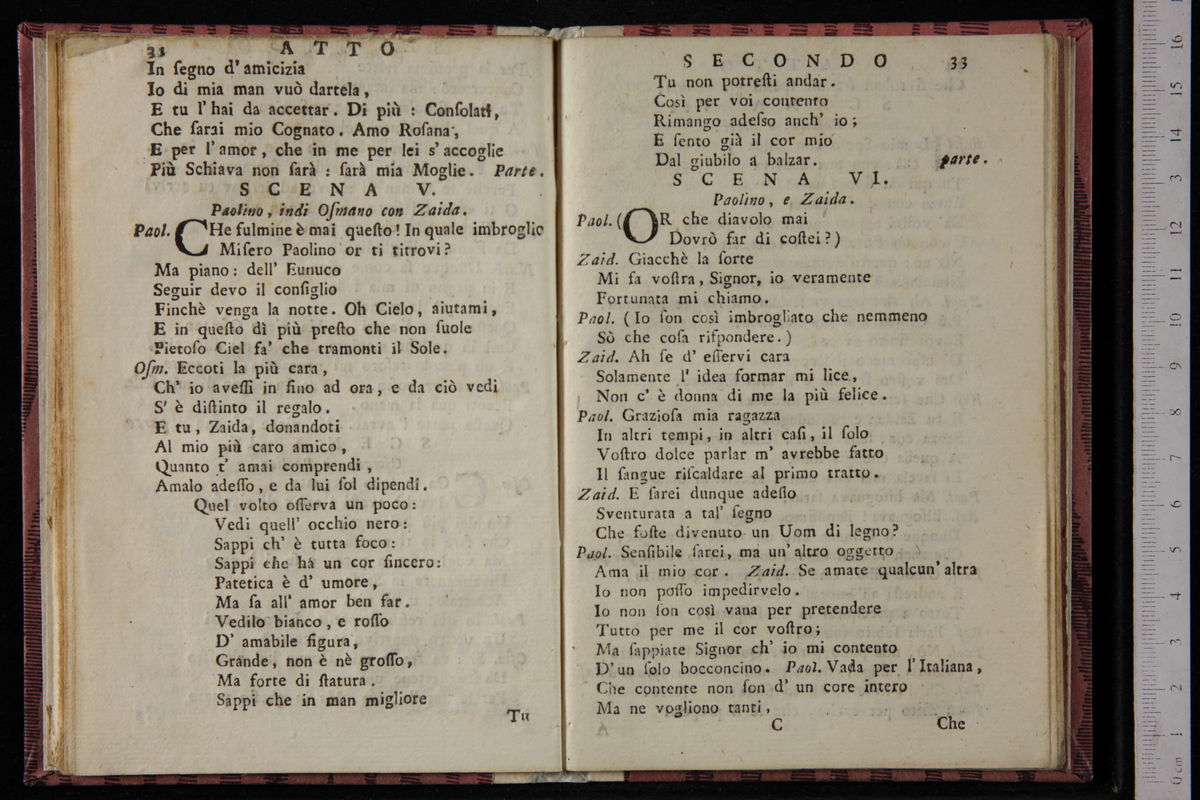 32 ATTO
In ſegno d' amicizia
Io di mia man vuò dartela,
E tu l' hai da accettar. Di più: Conſolati,
Che ſarai mio Cognato. Amo Roſana,
E per l' amor, che in me per lei s' accoglie
Più Schiava non ſarà: ſarà mia Moglie. Parte.
SCENA V.
Paolino, indi Oſmano con Zaida.
Paol. CHe fulmine è mai queſto! In quale imbroglio
Miſero Paolino or ti titrovi?
Ma piano: dell' Eunuco
Seguir devo il conſiglio
Finchè venga la notte. Oh Cielo, aiutami,
E in queſto dì più preſto che non ſuole
Pietoſo Ciel fa' che tramonti il Sole.
Oſm. Eccoti la più cara,
Ch' io aveſſi in ſino ad ora, e da ciò vedi
S' è diſtinto il regalo.
E tu, Zaida, donandoti
Al mio più caro amico,
Quanto t' amai comprendi,
Amalo adeſſo, e da lui ſol dipendi.
Quel volto oſſerva un poco:
Vedi quell' occhio nero:
Sappi ch' è tutta foco:
Sappi che hà un cor ſincero:
Patetica è d' umore,
Ma ſa all' amor ben far.
Vedilo bianco, e roſſo
D' amabile figura,
Grande, non è nè groſſo,
Ma forte di ſtatura.
Sappi che in man migliore
Tu
SECONDO 33
Tu non potreſti andar.
Così per voi contento
Rimango adeſso anch' io;
E ſento già il cor mio
Dal giubilo a balzar. parte.
SCENA VI.
Paolino, e Zaida.
Paol. (OR che diavolo mai
Dovrò far di coſtei?)
Zaid. Giacchè la ſorte
Mi fa voſtra, Signor, io veramente
Fortunata mi chiamo.
Paol. (Io ſon così imbrogliato che nemmeno
Sò che coſa riſpondere.)
Zaid. Ah ſe d' eſſervi cara
Solamente l' idea formar mi lice,
Non c' è donna di me la più felice.
Paol. Grazioſa mia ragazza
In altri tempi, in altri caſi, il ſolo
Voſtro dolce parlar m' avrebbe fatto
Il ſangue riſcaldare al primo tratto.
Zaid. E ſarei dunque adeſſo
Sventurata a tal' ſegno
Che foſte divenuto un Uom di legno?
Paol. Senſibile ſarei, ma un' altro oggetto
Ama il mio cor. Zaid. Se amate qualcun' altra
Io non poſſo impedirvelo.
Io non ſon così vana per pretendere
Tutto per me il cor voſtro;
Ma ſappiate Signor ch' io mi contento
D' un ſolo bocconcino. Paol. Vada per l' Italiana,
Che contente non ſon d' un core intero
Ma ne vogliono tanti,
C Che
0 cm 1 2 3 4 5 6 7 8 9 10 11 12 13 14 15 16